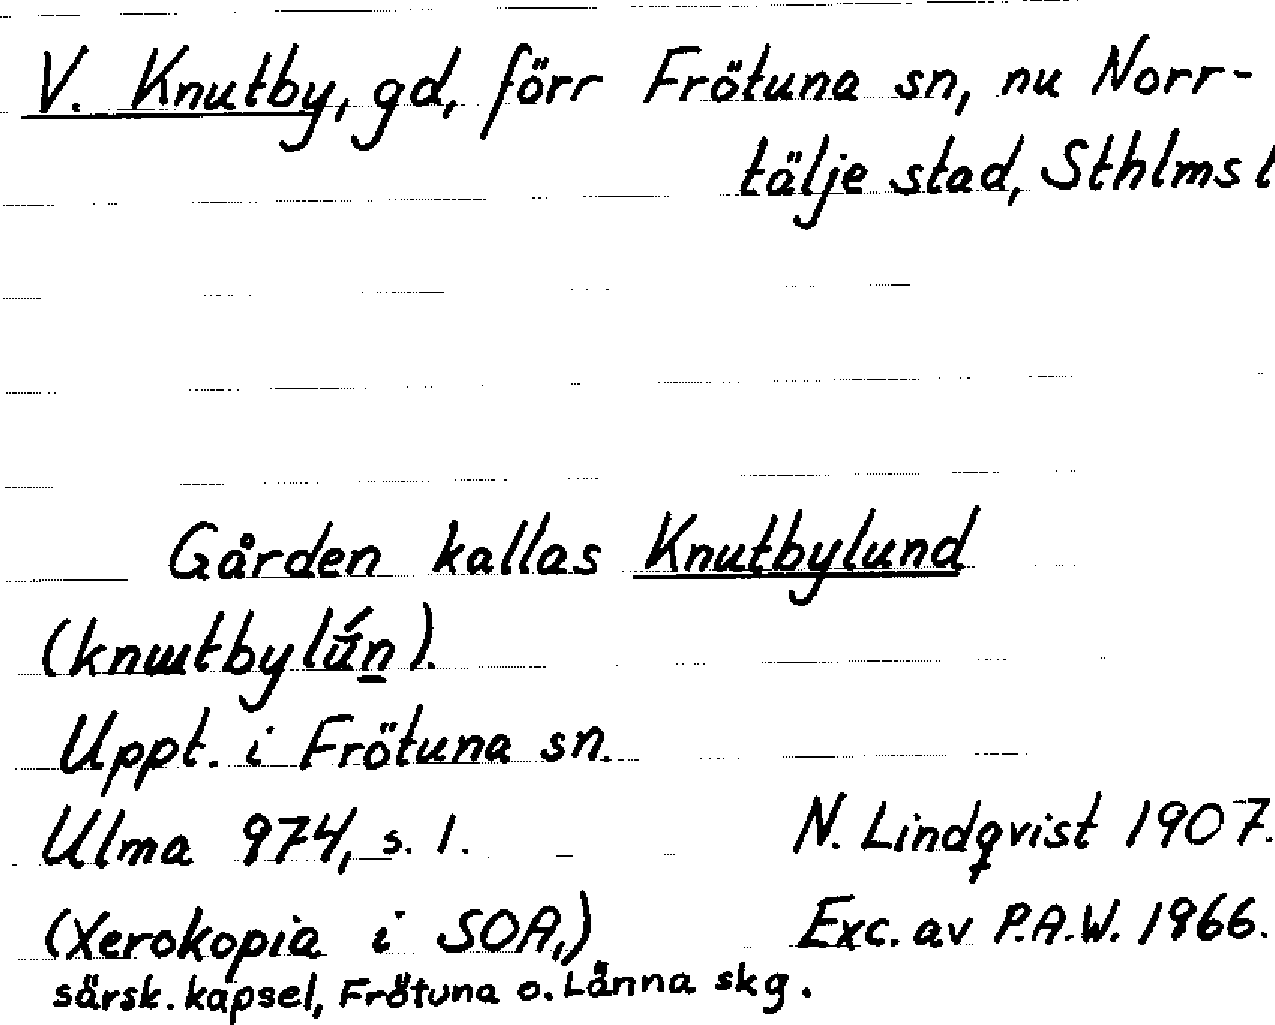 V. Knutby, gd, förr Frötuna sn, nu Norr-
tälje stad, Sthlms l
Gården kallas Knutbylund
(knɯtbylǘn).
Uppt. i Frötuna sn.
Ulma 974, s. 1. N. Lindqvist 1907.
(Xerokopia i SOA,) Exc. av P.A.W. 1966.
särsk. kapsel, Frötuna o. Länna skg.